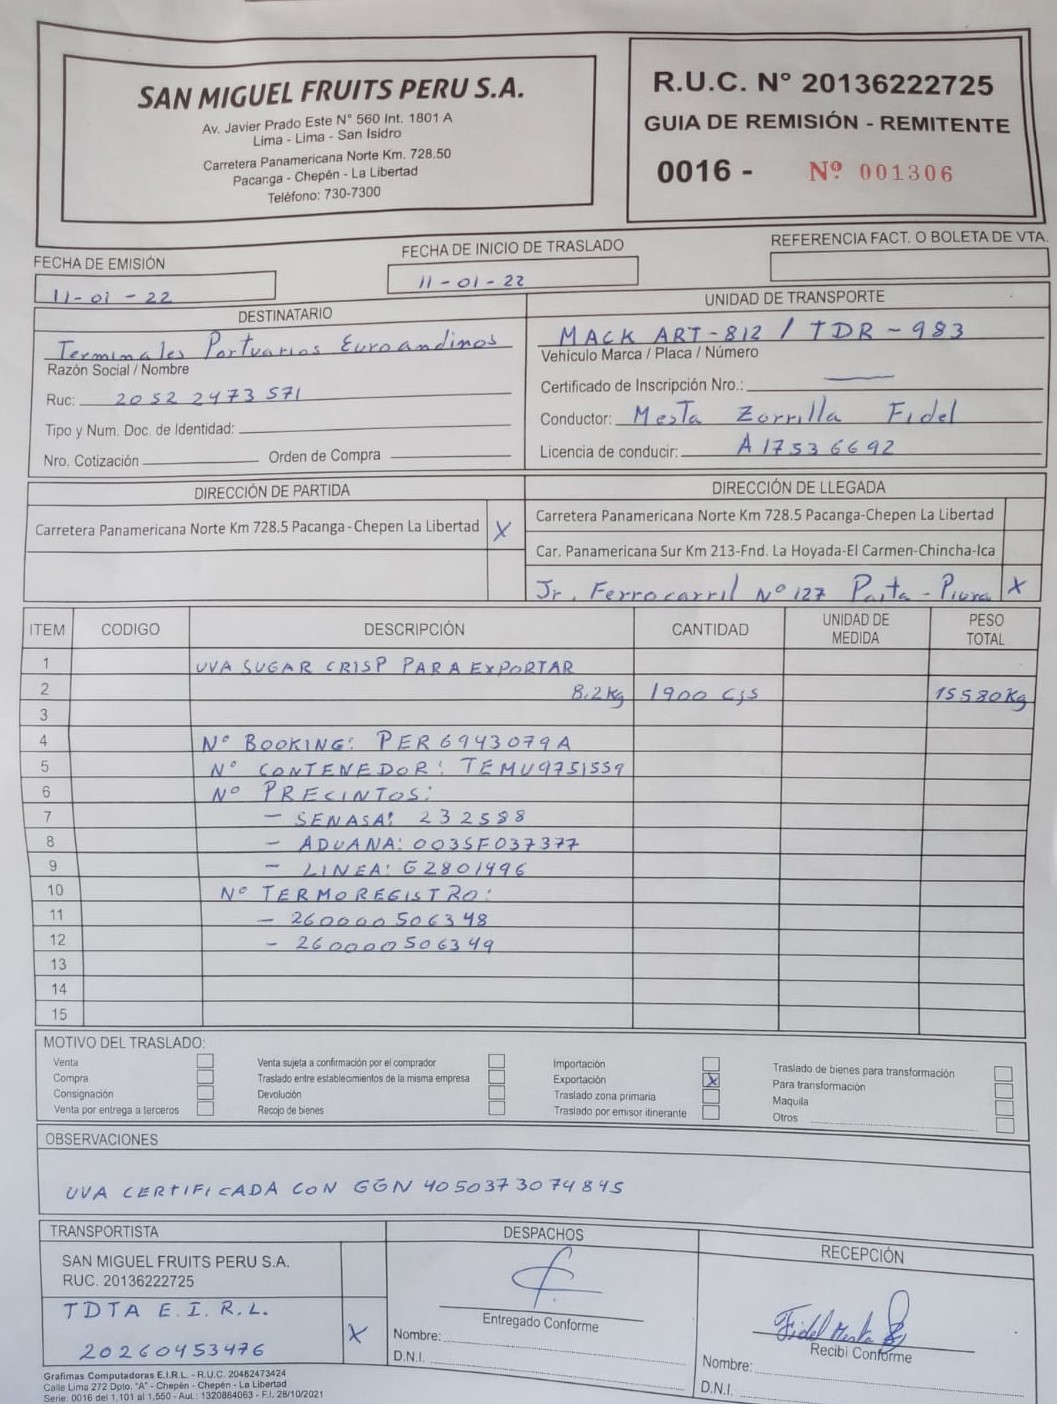 SAN MIGUEL FRUITS PERU S.A.
Av. Javier Prado Este N° 560 Int. 1801 A
Lima - Lima - San Isidro
Carretera Panamericana Norte Km. 728.50
Pacanga - Chepén - La Libertad
Teléfono: 730-7300
R.U.C. N° 20136222725
GUIA DE REMISIÓN - REMITENTE
0016 - Nº 001306
FECHA DE EMISIÓN
11-01-22
FECHA DE INICIO DE TRASLADO
11-01-22
REFERENCIA FACT. O BOLETA DE VTA.
DESTINATARIO
Terminales Portuarios Euroandinos
Razón Social / Nombre
Ruc: 20522473571
Tipo y Num. Doc. de Identidad:
Nro. Cotización Orden de Compra
UNIDAD DE TRANSPORTE
MACK ART-812 / TDR-983
Vehículo Marca / Placa / Número
Certificado de Inscripción Nro.: —
Conductor: Mesta Zorrilla Fidel
Licencia de conducir: A17536692
DIRECCIÓN DE PARTIDA
Carretera Panamericana Norte Km 728.5 Pacanga-Chepen La Libertad X
DIRECCIÓN DE LLEGADA
Carretera Panamericana Norte Km 728.5 Pacanga-Chepen La Libertad
Car. Panamericana Sur Km 213-Fnd. La Hoyada-El Carmen-Chincha-Ica
Jr. Ferrocarril Nº 127 Paita - Piura X
ITEM CODIGO DESCRIPCIÓN CANTIDAD UNIDAD DE MEDIDA PESO TOTAL
1 UVA SUGAR CRISP PARA EXPORTAR
2 8.2kg 1900 cjs 15580Kg
3
4 Nº BOOKING: PER6943079A
5 Nº CONTENEDOR: TEMU9751559
6 Nº PRECINTOS:
7 - SENASA: 232588
8 - ADUANA: 003SF037377
9 - LINEA: G2801496
10 Nº TERMOREGISTRO:
11 - 260000506348
12 - 260000506349
13
14
15
MOTIVO DEL TRASLADO:
Venta
Compra
Consignación
Venta por entrega a terceros
Venta sujeta a confirmación por el comprador
Traslado entre establecimientos de la misma empresa
Devolución
Recojo de bienes
Importación
Exportación X
Traslado zona primaria
Traslado por emisor itinerante
Traslado de bienes para transformación
Para transformación
Maquila
Otros
OBSERVACIONES
UVA CERTIFICADA CON GGN 4050373074845
TRANSPORTISTA
SAN MIGUEL FRUITS PERU S.A.
RUC. 20136222725
TDTA E.I.R.L.
20260453476 X
DESPACHOS
Entregado Conforme
Nombre:
D.N.I.
RECEPCIÓN
Fidel Mesta
Recibi Conforme
Nombre:
D.N.I.
Grafimas Computadoras E.I.R.L. - R.U.C. 20482473424
Calle Lima 272 Dpto. "A" - Chepén - Chepén - La Libertad
Serie: 0016 del 1,101 al 1,550 - Aut.: 1320864063 - F.I. 28/10/2021